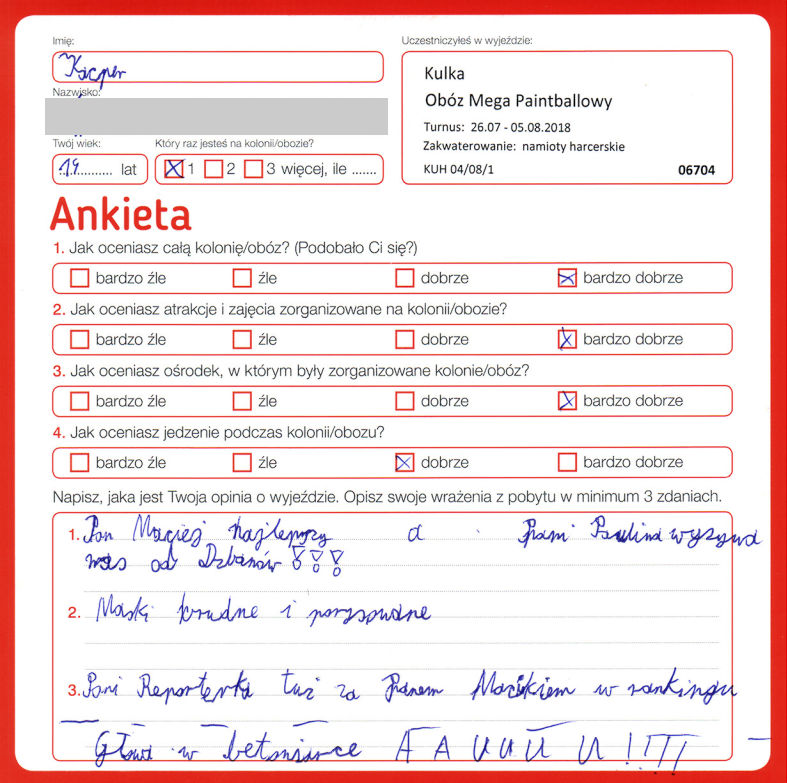 Imię:
Kacper
Nazwisko:
Twój wiek:
14 lat
Który raz jesteś na kolonii/obozie?
1 2 3 więcej, ile .......
Uczestniczyłeś w wyjeździe:
Kulka
Obóz Mega Paintballowy
Turnus: 26.07 - 05.08.2018
Zakwaterowanie: namioty harcerskie
KUH 04/08/1 06704
Ankieta
1. Jak oceniasz całą kolonię/obóz? (Podobało Ci się?)
bardzo źle źle dobrze bardzo dobrze
2. Jak oceniasz atrakcje i zajęcia zorganizowane na kolonii/obozie?
bardzo źle źle dobrze bardzo dobrze
3. Jak oceniasz ośrodek, w którym były zorganizowane kolonie/obóz?
bardzo źle źle dobrze bardzo dobrze
4. Jak oceniasz jedzenie podczas kolonii/obozu?
bardzo źle źle dobrze bardzo dobrze
Napisz, jaka jest Twoja opinia o wyjeździe. Opisz swoje wrażenia z pobytu w minimum 3 zdaniach.
1. Pan Maciej najlepszy a Pani Paulina wyzywa
nas od Dzbanów !!!
2. Maski brudne i porysowane
3. Pani Reporterka tuż za Panem Maćkiem w rankingu
Głowa w betoniarce A A U U U U !!!!!